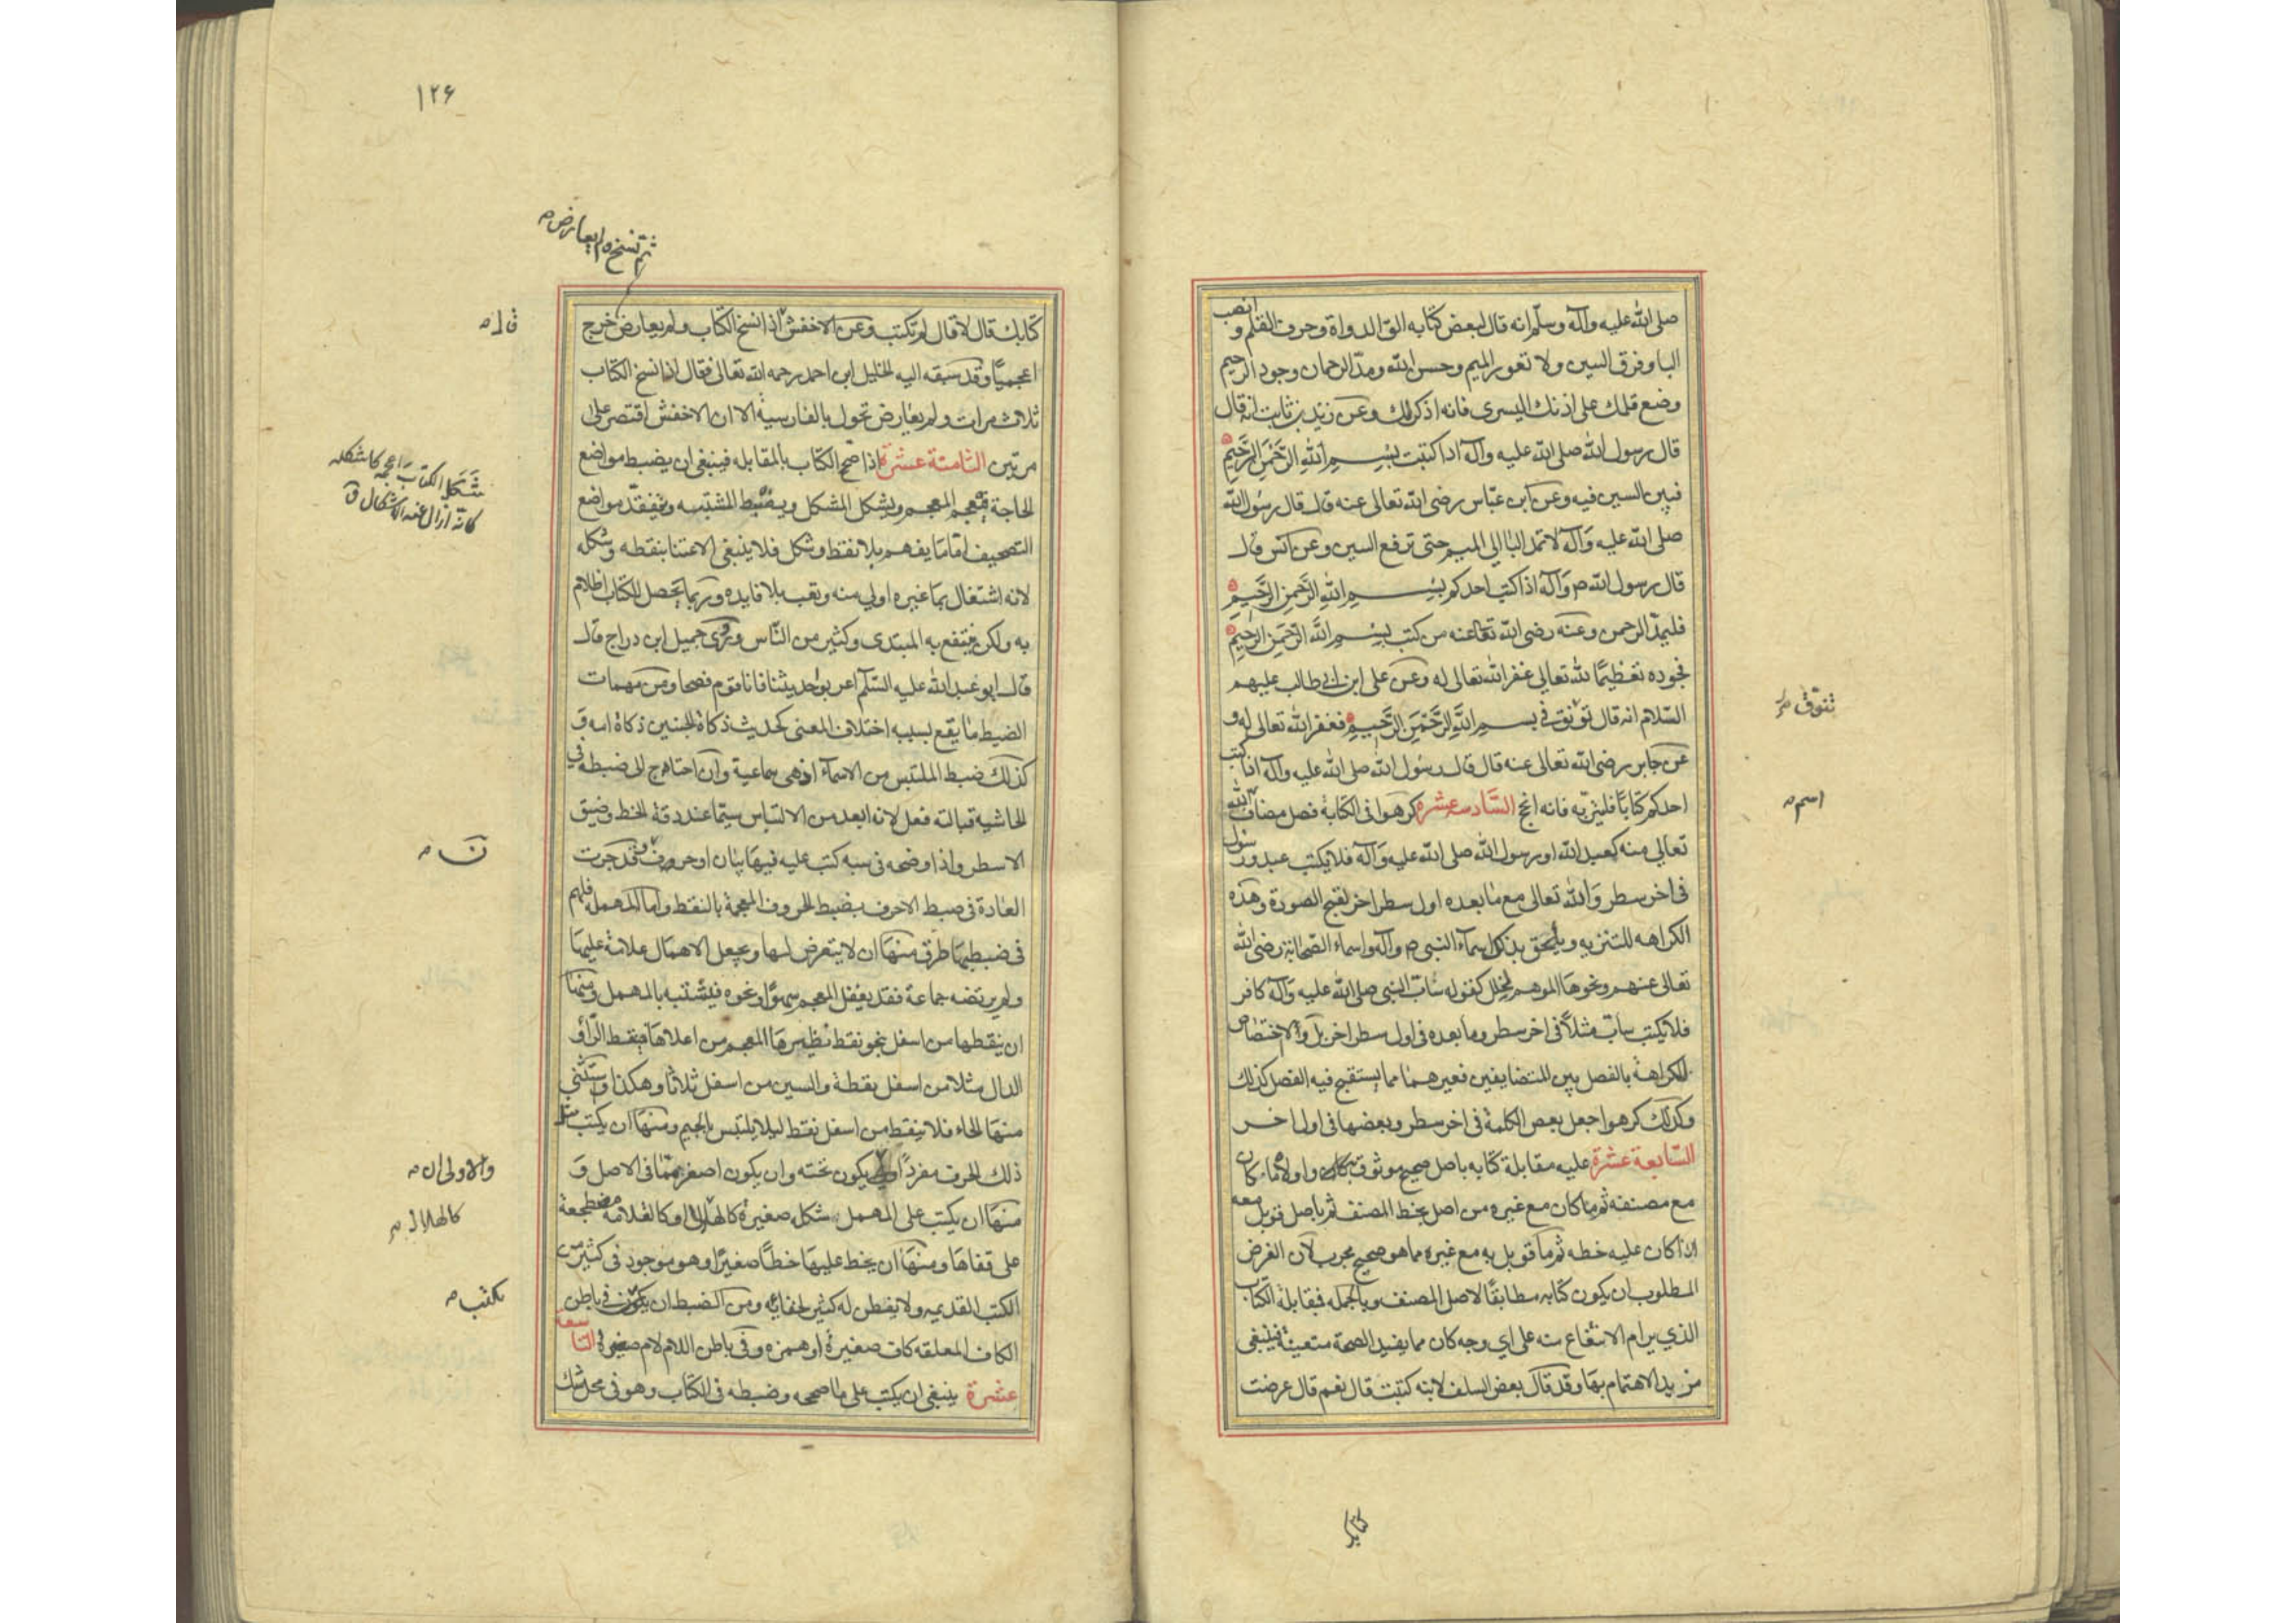 صلى الله عليه وآله وسلم انه قال لبعض كتابه الق الدواة وحرف القلم وانصب
البا وفرق السين ولا تعور الميم وحسن الله ومد الرحمان وجود الرحيم
وضع قلمك على اذنك اليسرى فانه اذكر لك وعن زيد بن ثابت انه قال
قال رسول الله صلى الله عليه وآله اذا كتبت بسم الله الرحمن الرحيم
فبين السين فيه وعن ابن عباس رضى الله تعالى عنه قال قال رسول الله
صلى الله عليه وآله لا تمد البا الى الميم حتى ترفع السين وعن انس قال
قال رسول الله ص وآله اذا كتب احدكم بسم الله الرحمن الرحيم
فليمد الرحمن وعنه رضى الله تعالى عنه من كتب بسم الله الرحمن الرحيم
فجوده تعظيما لله تعالى غفر الله تعالى له وعن على ابن ابى طالب عليهم
السلام انه قال تنوق فى بسم الله الرحمن الرحيم فغفر الله تعالى له و
تنوق
عن جابر رضى الله تعالى عنه قال قال رسول الله صلى الله عليه وآله اذا كتب
احدكم كتابا فليتربه فانه انجح السادسة عشرة كرهوا فى الكتابة فصل مضاف الله
اسم
تعالى منه كعبد الله او رسول الله صلى الله عليه وآله فلا يكتب عبد ورسول
فى اخر سطر والله تعالى مع ما بعده اول سطر اخر لقبح الصورة وهذه
الكراهه للتنزيه ويلحق بذلك اسماء النبى ص وآله واسماء الصحابة رضى الله
تعالى عنهم ونحوها الموهم لخلل كقوله ساب النبى صلى الله عليه وآله كافر
فلا يكتب ساب مثلا فى اخر سطر وما بعده فى اول سطر اخر بل ولا اختصاص
للكراهة بالفصل بين المتضايفين فغيرهما مما يستقبح فيه الفصل كذلك
وكذلك كرهوا جعل بعض الكلمة فى اخر سطر وبعضها فى اول اخر
السابعة عشرة عليه مقابلة كتابه باصل صحيح موثوق به واولاه ما كان
مع مصنفه ثم ما كان مع غيره من اصل بخط المصنف ثم باصل قوبل معه
اذا كان عليه خطه ثم ما قوبل به مع غيره مما هو صحيح مجرب لان الغرض
المطلوب ان يكون كتابه مطابقا لاصل المصنف وبالجمله فمقابلة الكتاب
الذي يرام الانتفاع منه على اي وجه كان مما يفيد الصحة متعينة فينبغى
مزيد الاهتمام بها وقد قال بعض السلف لابنه كتبت قال نعم قال عرضت
كتابك
١٢۶
ثم نسخ ولم يعارض
كتابك قال لا قال لم تكتب وعن الاخفش اذا نسخ الكتاب ولم يعارض خرج
قال
اعجميا وقد سبقه اليه الخليل ابن احمد رحمه الله تعالى فقال اذا نسخ الكتاب
ثلاث مرات ولم يعارض تحول بالفارسية الا ان الاخفش اقتصر على
مرتين الثامنة عشرة اذا صح الكتاب بالمقابله فينبغى ان يضبط مواضع
شكل الكتاب اعجمه كاشكله
كانه ازال عنه الاشكال ق
الحاجة فيعجم المعجم ويشكل المشكل ويضبط المشتبه ويتفقد مواضع
التصحيف اما ما يفهم بلا نقط وشكل فلا ينبغى الاعتنا بنقطه وشكله
لانه اشتغال بما غيره اولى منه وتعب بلا فايده وربما يحصل للكتاب اظلام
به ولكن ينتفع به المبتدى وكثير من الناس وروى جميل ابن دراج قال
قال ابو عبد الله عليه السلم اعربوا حديثنا فانا قوم فصحا ومن مهمات
الضبط ما يقع بسببه اختلاف المعنى كحديث ذكاة الجنين ذكاة امه و
كذلك ضبط الملتبس من الاسماء اذ هى سماعية وان احتاج الى ضبطه فى
الحاشيه قبالته فعل لانه ابعد من الالتباس سيما عند دقة الخط وضيق
الاسطر واذا اوضحه فى كتب عليه فيها بيان او حرف ن وقد جرت
ن
العادة فى ضبط الاحرف بضبط الحروف المعجمة بالنقط واما المهمله فلهم
فى ضبطها طرق منها ان لا يتعرض لها ويجعل الاهمال علامة عليها
ولم يرتضه جماعة فقد يغفل المعجم سهوا او نحوه فيشتبه بالمهمل ومنها
ان ينقطها من اسفل بنحو نقط نظيرها المعجم من اعلاها فينقط الرا و
الدال مثلا من اسفل بنقطة والسين من اسفل ثلاثا وهكذا ويستثنى
منها الحاء فلا ينقط من اسفل نقط ليلا يلتبس بالجيم ومنها ان يكتب مثل
ذلك الحرف مفردا يكون تحته وان يكون اصغر مما فى الاصل و
والاولى ان
منها ان يكتب على المهمل شكله صغيرة كالهلال او كالقلامه مضطجعة
كالهلال
على قفاها ومنها ان يخط عليها خطا صغيرا وهو موجود فى كثير من
الكتب القديمه ولا يفطن له كثير لخفائه ومن الضبط ان يكتب فى باطن
يكتب
الكاف المعلقه كاف صغيرة او همزه وفى باطن اللام لام صغيرة التاسعة
عشرة ينبغى ان يكتب على ما صححه وضبطه فى الكتاب وهو فى محل شك